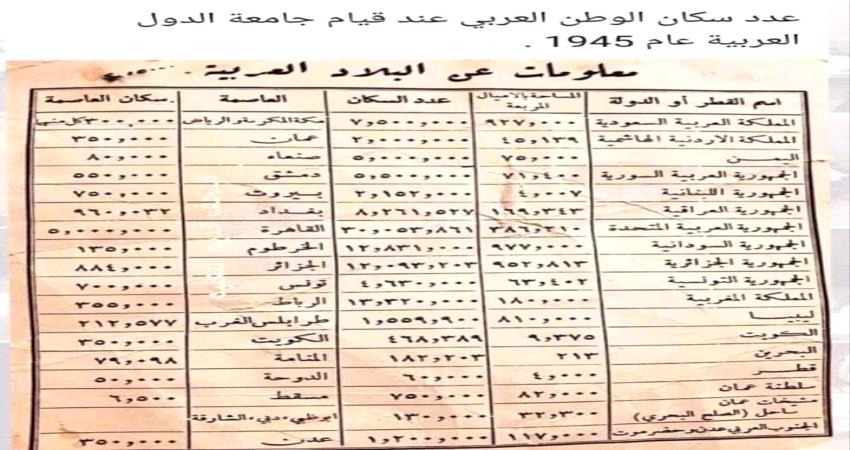 عدد سكان الوطن العربي عند قيام جامعة الدول
العربية عام 1945 .
معلومات عن البلاد العربية
اسم القطر أو الدولة المساحة بالاميال المربعة عدد السكان العاصمة سكان العاصمة
المملكة العربية السعودية ٩٢٧،٠٠٠ ٧،٥٠٠،٠٠٠ مكة المكرمة والرياض ٣٠٠،٠٠٠ كل منهما
المملكة الاردنية الهاشمية ٤٥،١٣٩ ٢،٠٠٠،٠٠٠ عمان ٣٥٠،٠٠٠
اليمن ٧٥،٠٠٠ ٥،٠٠٠،٠٠٠ صنعاء ٨٠،٠٠٠
الجمهورية العربية السورية ٧١،٤٠٠ ٥،٠٠٠،٠٠٠ دمشق ٥٥٠،٠٠٠
الجمهورية اللبنانية ٤،٠٠٧ ٢،١٥٢،٠٠٠ بيروت ٧٥٠،٠٠٠
الجمهورية العراقية ١٦٩،٣٤٣ ٨،٢٦١،٥٢٧ بغداد ٩٦٠،٠٣٢
الجمهورية العربية المتحدة ٣٨٦،٢١٠ ٣٠،٠٥٣،٨٦١ القاهرة ٥،٠٠٠،٠٠٠
الجمهورية السودانية ٩٧٧،٠٠٠ ١٢،٨٣١،٠٠٠ الخرطوم ١٣٥،٠٠٠
الجمهورية الجزائرية ٩٥٢،٨١٣ ١٢،٠٩٣،٢٠٣ الجزائر ٨٨٤،٠٠٠
الجمهورية التونسية ٦٣،٤٠٢ ٤،٦٣٠،٠٠٠ تونس ٧٠٠،٠٠٠
المملكة المغربية ١٨٠،٠٠٠ ١٣،٣٢٠،٠٠٠ الرباط ٣٥٥،٠٠٠
ليبيا ٨١٠،٠٠٠ ١،٥٥٩،٩٠٠ طرابلس الغرب ٢١٢،٥٧٧
الكويت ٩،٣٧٥ ٤٦٨،٣٨٩ الكويت ٣٥٠،٠٠٠
البحرين ٢١٣ ١٨٢،٢٠٣ المنامة ٧٩،٠٩٨
قطر ٤،٠٠٠ ٦٠،٠٠٠ الدوحة ٥٠،٠٠٠
سلطنة عمان ٨٢،٠٠٠ ٧٥٠،٠٠٠ مسقط ٦،٥٠٠
مشيخات عمان
ساحل (الصلح البحري) ٣٢،٣٠٠ ١٣٠،٠٠٠ ابوظبي، دبي، الشارقة
الجنوب العربي عدن وحضرموت ١١٧،٠٠٠ ١،٢٠٠،٠٠٠ عدن ٣٥٠،٠٠٠